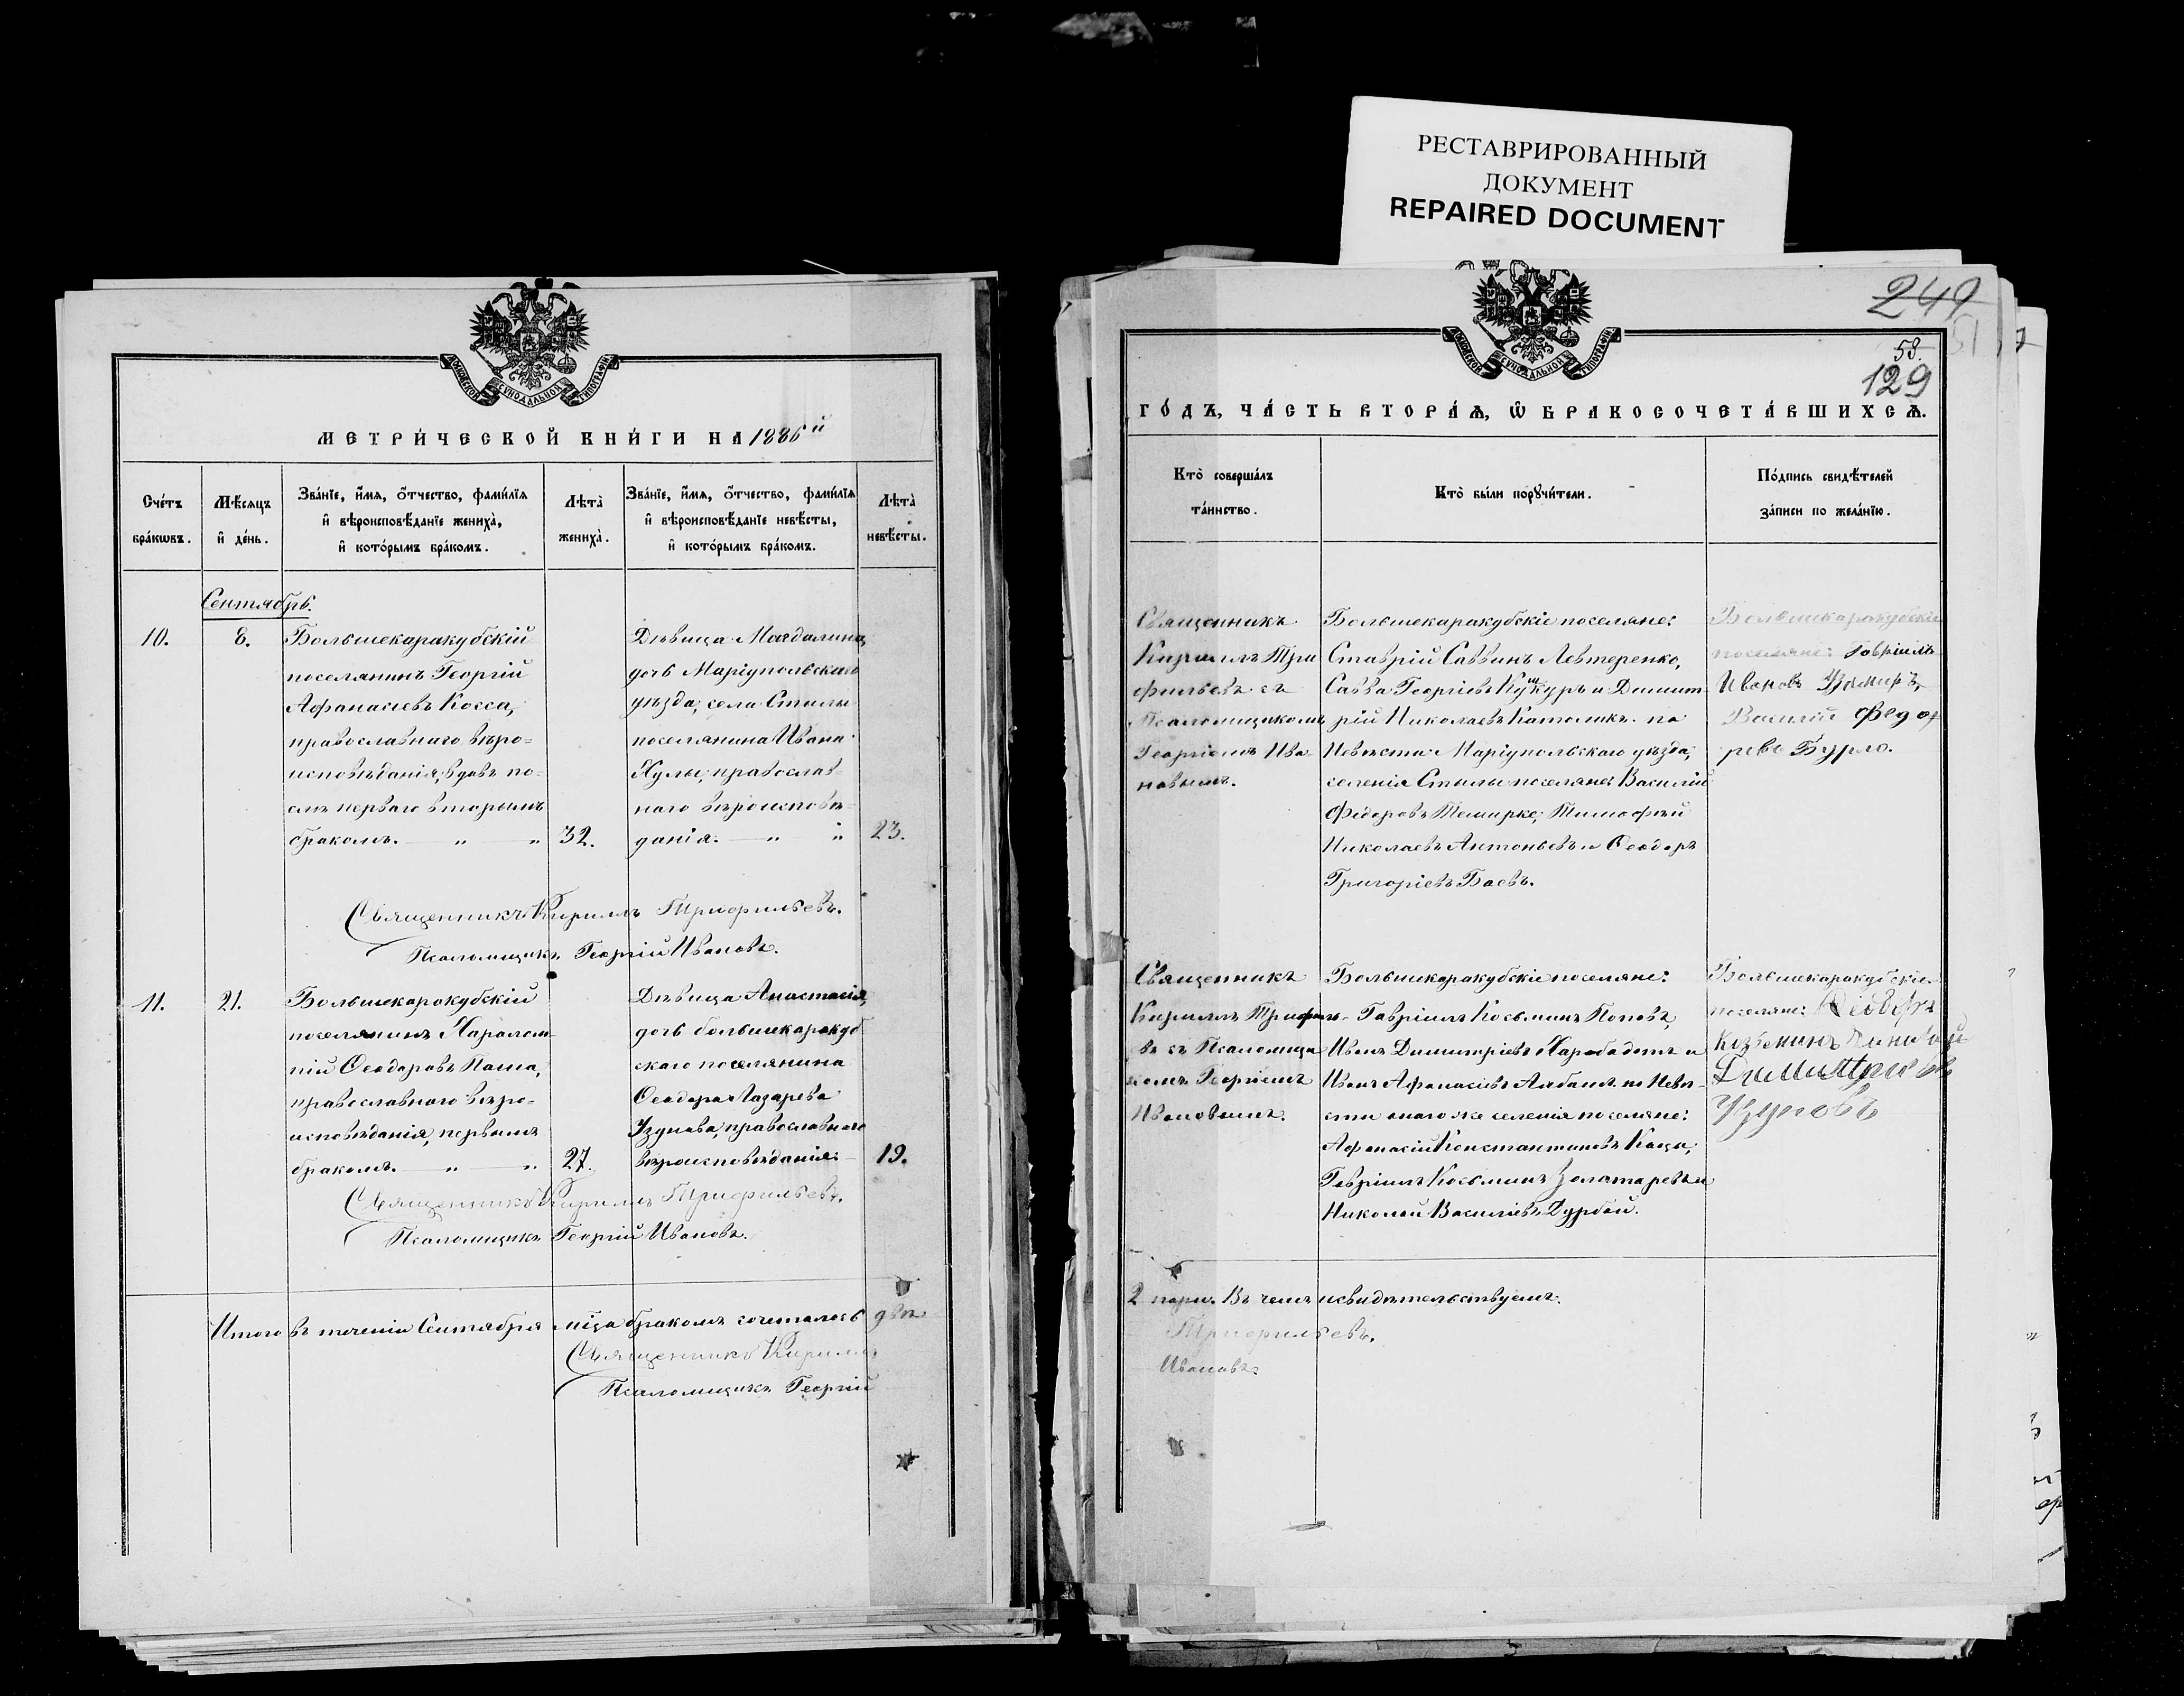 РЕСТАВРИРОВАННЫЙ
ДОКУМЕНТ
REPAIRED DOCUMENT
МЕТРИ́ЧЕСКОЙ КНИ́ГИ НА 1886й
Сче́тъ
бра́кωвъ.
Мѣ́сяцъ
и҆ де́нь.
Зва́нїе, и҆́мѧ, ѻ҆́тчество, фами́лїѧ
и҆ вѣроисповѣ́данїе жениха̀,
и҆ кото́рымъ бра́комъ.
Лѣта̀
жениха̀.
Зва́нїе, и҆́мѧ, ѻ҆́тчество, фами́лїѧ
и҆ вѣроисповѣ́данїе невѣ́сты,
и҆ кото́рымъ бра́комъ.
Лѣта̀
невѣ́сты.
Сентябрь.
10.
8.
Большекаракубскій
поселянинъ Георгій
Афанасіевъ Косса,
православнаго вѣро=
исповѣданія, вдовъ по=
слѣ перваго вторымъ
бракомъ. — „ — „
32.
Дѣвица Магдалина,
дочь Маріупольскаго
уѣзда, села Стилы
поселянина Ивана
Хулы, православ=
наго вѣроисповѣ=
данія. — „ „
23.
Священникъ Кириллъ Трифильевъ.
Псаломщикъ Георгій Ивановъ.
11.
21.
Большекаракубскій
поселянинъ Харалам=
пій Ѳеодоровъ Паша,
православнаго вѣро=
исповѣданія, первымъ
бракомъ. — „ — „
27.
Дѣвица Анастасія,
дочь большекаракуб
скаго поселянина
Ѳеодора Лазарева
Узунова, православнаго
вѣроисповѣданія. —
19.
Священникъ Кириллъ Трифильевъ.
Псаломщикъ Георгій Ивановъ.
Итого въ теченіи Сентября мѣца бракомъ сочеталось двѣ
Священникъ Кириллъ
Псаломщикъ Георгій
249
58.
129
ГО́ДЪ, ЧА́СТЬ ВТОРА́Ѧ, Ѽ БРАКОСОЧЕТА́ВШИХСѦ.
Кто̀ соверша́лъ
та́инство.
Кто̀ бы́ли порꙋчи́тели.
По́дпись свидѣ́телей
за́писи по жела́нїю.
Священникъ
Кириллъ Три
фильевъ съ
Псаломщикомъ
Георгіемъ Ива=
новымъ.
Большекаракубскіе поселяне:
Ставрій Саввинъ Левтеренко,
Савва Георгіевъ и Димит=
рій Николаевъ Католикъ. по
Невѣстѣ: Маріупольскаго уѣзда,
селенія Стилы поселяне: Василій
Федоровъ Темирко, Тимофей
Николаевъ Антоньевъ и Ѳеодоръ
Григоріевъ Баевъ.
Большекаракубскіе
поселяне: Гавріилъ
Ивановъ
Василій Федо
ровъ Бурло.
Священникъ
Кириллъ Трифиль-
въ съ Псаломщи
комъ Георгіемъ
Ивановымъ.
Большекаракубскіе поселяне:
Гавріилъ Косьминъ Поповъ,
Иванъ Димитріевъ Харабадотъ и
Иванъ Афанасіевъ Албатъ. по Невѣ=
стѣ онаго же селенія поселяне:
Афанасій Константиновъ Каца,
Гавріилъ Косьминъ Золотаревъ и
Николай Василіевъ Дурбай.
Большекаракубскіе
поселяне: Ѳеодоръ
Козьминъ
Димитрій
Узуновъ
2 пары. Въ чемъ и свидѣтельствуемъ:
Трифильевъ.
Ивановъ.